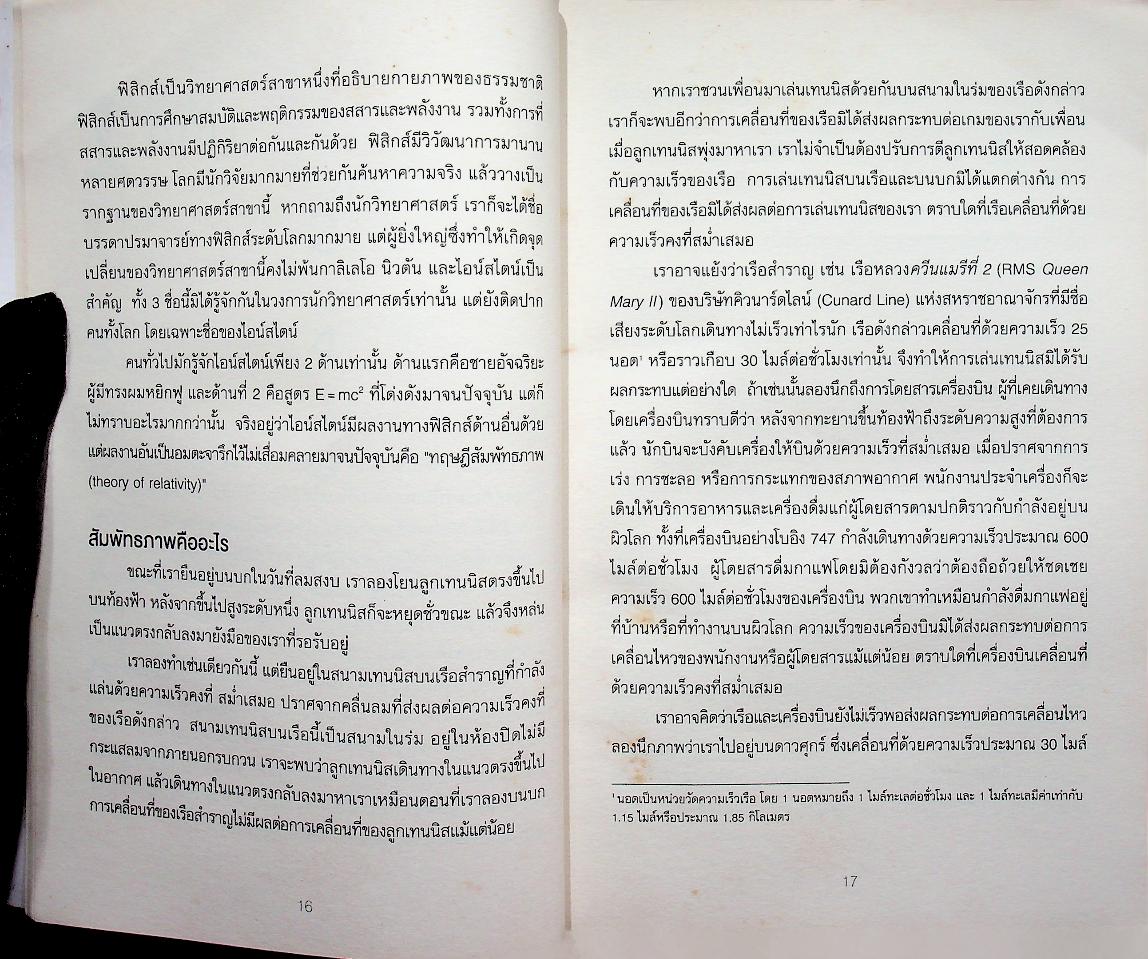 ฟิสิกส์เป็นวิทยาศาสตร์สาขาหนึ่งที่อธิบายกายภาพของธรรมชาติ
ฟิสิกส์เป็นการศึกษาสมบัติและพฤติกรรมของสสารและพลังงาน รวมทั้งการที่
สสารและพลังงานมีปฏิกิริยาต่อกันและกันด้วย ฟิสิกส์มีวิวัฒนาการมานาน
หลายศตวรรษ โลกมีนักวิจัยมากมายที่ช่วยกันค้นหาความจริง แล้ววางเป็น
รากฐานของวิทยาศาสตร์สาขานี้ หากถามถึงนักวิทยาศาสตร์ เราก็จะได้ชื่อ
บรรดาปรมาจารย์ทางฟิสิกส์ระดับโลกมากมาย แต่ผู้ยิ่งใหญ่ซึ่งทำให้เกิดจุด
เปลี่ยนของวิทยาศาสตร์สาขานี้คงไม่พ้นกาลิเลโอ นิวตัน และไอน์สไตน์เป็น
สำคัญ ทั้ง 3 ชื่อนี้มิได้รู้จักกันในวงการนักวิทยาศาสตร์เท่านั้น แต่ยังติดปาก
คนทั้งโลก โดยเฉพาะชื่อของไอน์สไตน์
คนทั่วไปมักรู้จักไอน์สไตน์เพียง 2 ด้านเท่านั้น ด้านแรกคือชายอัจฉริยะ
ผู้มีทรงผมหยิกฟู และด้านที่ 2 คือสูตร E = mc² ที่โด่งดังมาจนปัจจุบัน แต่ก็
ไม่ทราบอะไรมากกว่านั้น จริงอยู่ว่าไอน์สไตน์มีผลงานทางฟิสิกส์ด้านอื่นด้วย
แต่ผลงานอันเป็นอมตะจารึกไว้ไม่เสื่อมคลายมาจนปัจจุบันคือ "ทฤษฎีสัมพัทธภาพ
(theory of relativity)"
สัมพัทธภาพคืออะไร
ขณะที่เรายืนอยู่บนบกในวันที่ลมสงบ เราลองโยนลูกเทนนิสตรงขึ้นไป
บนท้องฟ้า หลังจากขึ้นไปสูงระดับหนึ่ง ลูกเทนนิสก็จะหยุดชั่วขณะ แล้วจึงหล่น
เป็นแนวตรงกลับลงมายังมือของเราที่รอรับอยู่
เราลองทำเช่นเดียวกันนี้ แต่ยืนอยู่ในสนามเทนนิสบนเรือสำราญที่กำลัง
แล่นด้วยความเร็วคงที่ สม่ำเสมอ ปราศจากคลื่นลมที่ส่งผลต่อความเร็วคงที่
ของเรือดังกล่าว สนามเทนนิสบนเรือนี้เป็นสนามในร่ม อยู่ในห้องปิดไม่มี
กระแสลมจากภายนอกรบกวน เราจะพบว่าลูกเทนนิสเดินทางในแนวตรงขึ้นไป
ในอากาศ แล้วเดินทางในแนวตรงกลับลงมาหาเราเหมือนตอนที่เราลองบนบก
การเคลื่อนที่ของเรือสำราญไม่มีผลต่อการเคลื่อนที่ของลูกเทนนิสแม้แต่น้อย
16
หากเราชวนเพื่อนมาเล่นเทนนิสด้วยกันบนสนามในร่มของเรือดังกล่าว
เราก็จะพบอีกว่าการเคลื่อนที่ของเรือมิได้ส่งผลกระทบต่อเกมของเรากับเพื่อน
เมื่อลูกเทนนิสพุ่งมาหาเรา เราไม่จำเป็นต้องปรับการตีลูกเทนนิสให้สอดคล้อง
กับความเร็วของเรือ การเล่นเทนนิสบนเรือและบนบกมิได้แตกต่างกัน การ
เคลื่อนที่ของเรือมิได้ส่งผลต่อการเล่นเทนนิสของเรา ตราบใดที่เรือเคลื่อนที่ด้วย
ความเร็วคงที่สม่ำเสมอ
เราอาจแย้งว่าเรือสำราญ เช่น เรือหลวงควีนแมรีที่ 2 (RMS Queen
Mary II) ของบริษัทคิวนาร์ดไลน์ (Cunard Line) แห่งสหราชอาณาจักรที่มีชื่อ
เสียงระดับโลกเดินทางไม่เร็วเท่าไรนัก เรือดังกล่าวเคลื่อนที่ด้วยความเร็ว 25
นอต¹ หรือราวเกือบ 30 ไมล์ต่อชั่วโมงเท่านั้น จึงทำให้การเล่นเทนนิสมิได้รับ
ผลกระทบแต่อย่างใด ถ้าเช่นนั้นลองนึกถึงการโดยสารเครื่องบิน ผู้ที่เคยเดินทาง
โดยเครื่องบินทราบดีว่า หลังจากทะยานขึ้นท้องฟ้าถึงระดับความสูงที่ต้องการ
แล้ว นักบินจะบังคับเครื่องให้บินด้วยความเร็วที่สม่ำเสมอ เมื่อปราศจากการ
เร่ง การชะลอ หรือการกระแทกของสภาพอากาศ พนักงานประจำเครื่องก็จะ
เดินให้บริการอาหารและเครื่องดื่มแก่ผู้โดยสารตามปกติราวกับกำลังอยู่บน
ผิวโลก ทั้งที่เครื่องบินอย่างโบอิง 747 กำลังเดินทางด้วยความเร็วประมาณ 600
ไมล์ต่อชั่วโมง ผู้โดยสารดื่มกาแฟโดยมิต้องกังวลว่าต้องถือถ้วยให้ชดเชย
ความเร็ว 600 ไมล์ต่อชั่วโมงของเครื่องบิน พวกเขาทำเหมือนกำลังดื่มกาแฟอยู่
ที่บ้านหรือที่ทำงานบนผิวโลก ความเร็วของเครื่องบินมิได้ส่งผลกระทบต่อการ
เคลื่อนไหวของพนักงานหรือผู้โดยสารแม้แต่น้อย ตราบใดที่เครื่องบินเคลื่อนที่
ด้วยความเร็วคงที่สม่ำเสมอ
เราอาจคิดว่าเรือและเครื่องบินยังไม่เร็วพอส่งผลกระทบต่อการเคลื่อนไหว
ลองนึกภาพว่าเราไปอยู่บนดาวศุกร์ ซึ่งเคลื่อนที่ด้วยความเร็วประมาณ 30 ไมล์
¹นอตเป็นหน่วยวัดความเร็วเรือ โดย 1 นอตหมายถึง 1 ไมล์ทะเลต่อชั่วโมง และ 1 ไมล์ทะเลมีค่าเท่ากับ
1.15 ไมล์หรือประมาณ 1.85 กิโลเมตร
17